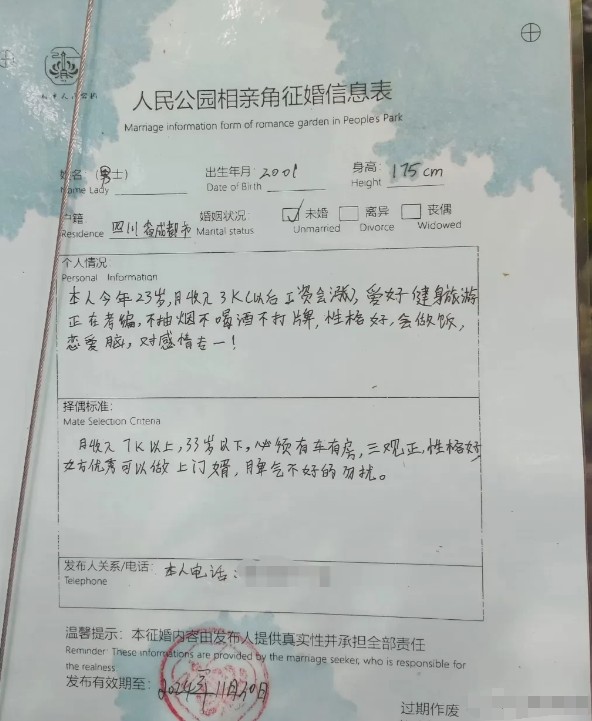 人民公园相亲角征婚信息表
Marriage information form of romance garden in People's Park
姓名 (男士) 出生年月: 2001 身高: 175cm
Name Lady Date of Birth Height
户籍 四川省成都市 婚姻状况: ☑ 未婚 ☐ 离异 ☐ 丧偶
Residence Marital status Unmarried Divorce Widowed
个人情况
Personal Information
本人今年23岁,月收入3K(以后工资会涨),爱好健身旅游
正在考编,不抽烟不喝酒不打牌,性格好,会做饭,
恋爱脑,对感情专一!
择偶标准:
Mate Selection Criteria
月收入7K以上,33岁以下,必须有车有房,三观正,性格好
女方优秀可以做上门婿,脾气不好的勿扰。
发布人关系/电话: 本人电话:
Telephone
温馨提示: 本征婚内容由发布人提供真实性并承担全部责任
Reminder: These informations are provided by the marriage seeker, who is responsible for
the realness
发布有效期至: 2024年11月30日
过期作废